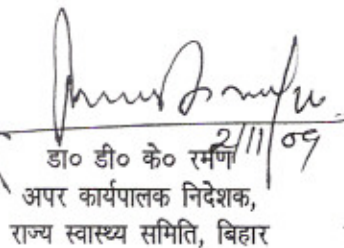 2/11/09
डा० डी० के० रमण
अपर कार्यपालक निदेशक,
राज्य स्वास्थ्य समिति, बिहार